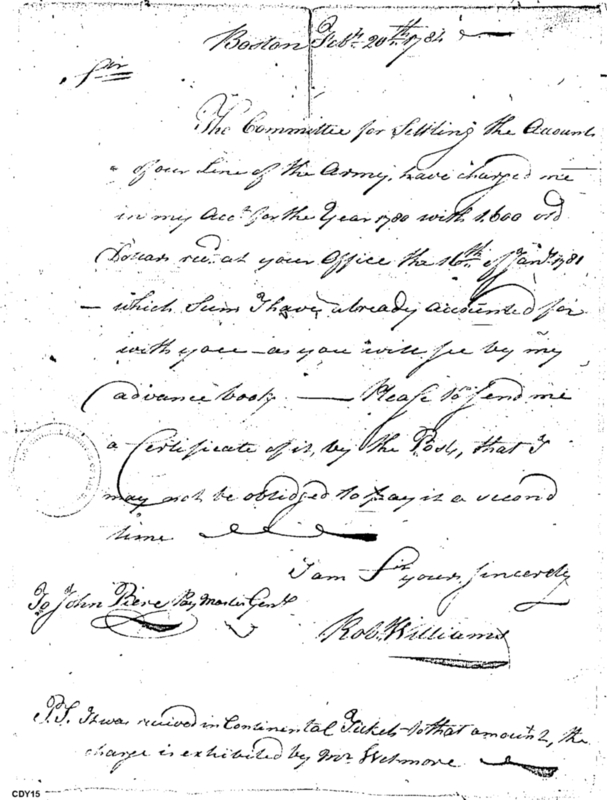 Boston Feb.y 20th 1784
Sir
The Committee for Settling the Accounts
of our Line of the Army, have charged me
in my Acct. for the Year 1780 with 1,600 old
Dollars recd. at your Office the 16th of Jany. 1781
— which Sum I have already accounted for
with you — as you will see by my
advance book — Please to send me
a Certificate of it, by the Post, that I
may not be obliged to pay it a second
time
I am Sir yours Sincerely
To John Piere Pay Master Genl.
Rob. Williams
P.S. It was received in Continental Tickets to that amount, the
charge is exhibited by Mr Wetmore
CDY15